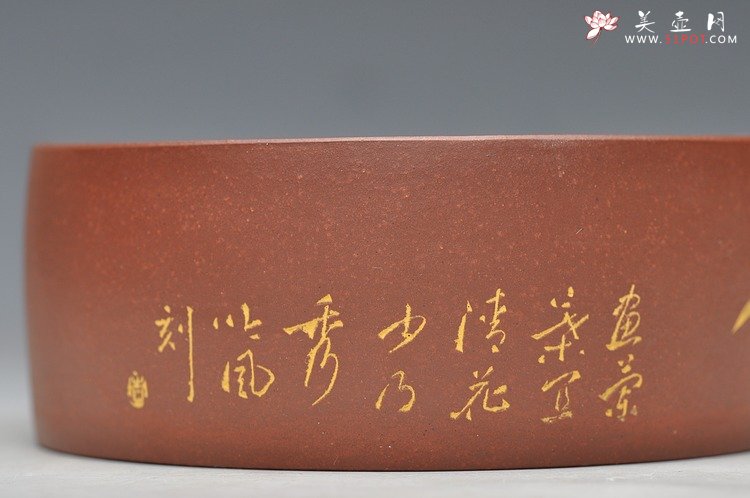 美壶网
WWW.51POT.COM
画兰
叶宜
清花
少乃
秀
小风
刻